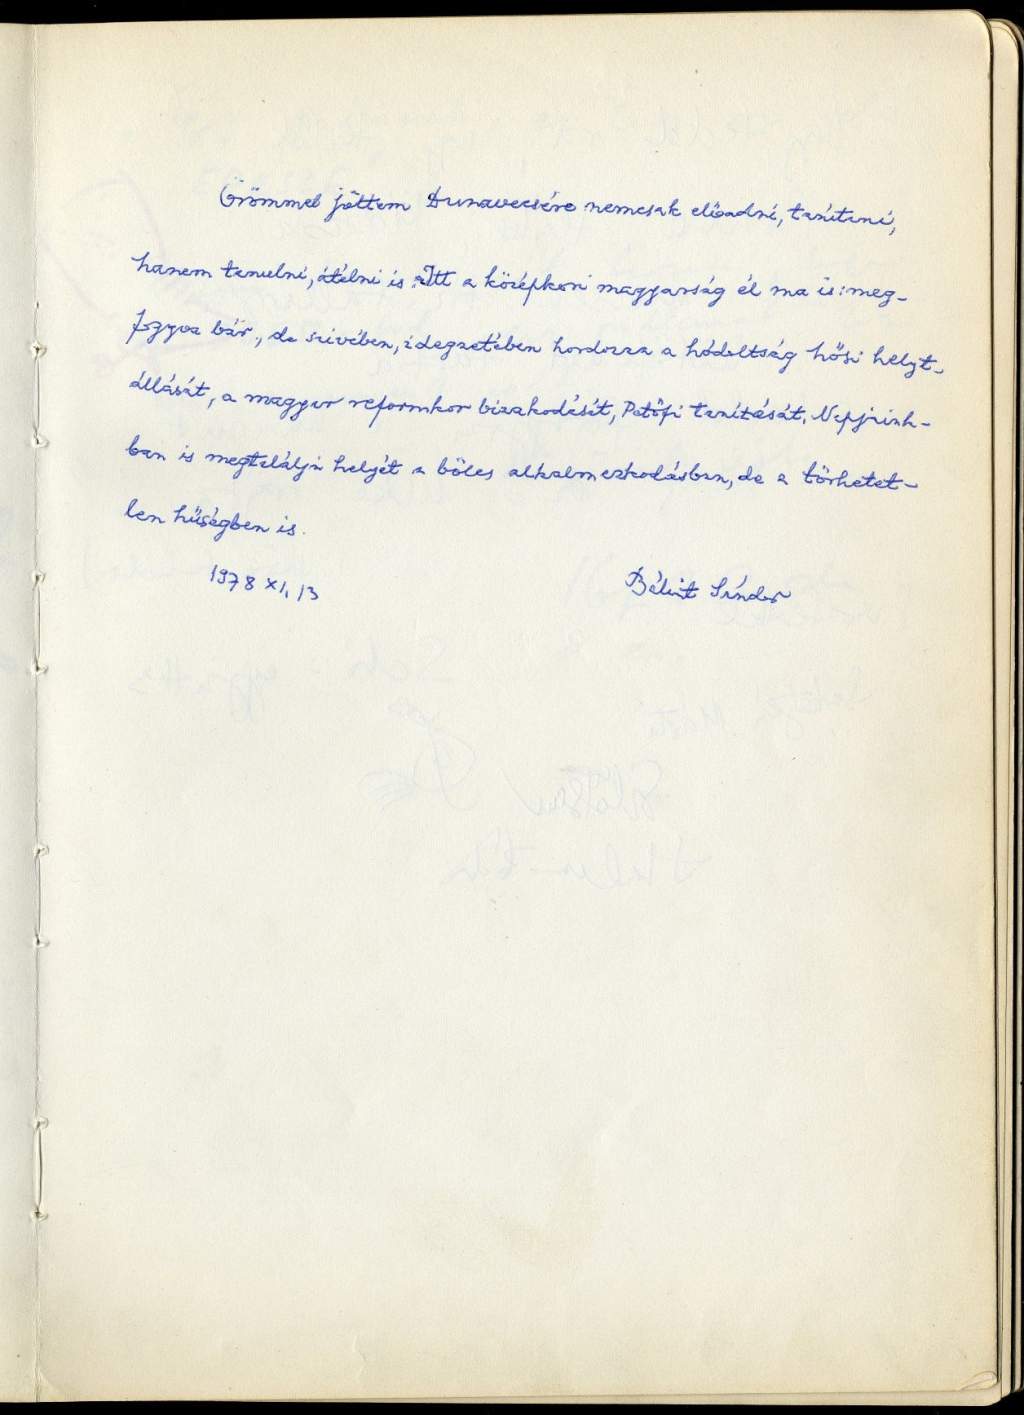 Örömmel jöttem Dunavecsére nemcsak előadni, tanítani,
hanem tanulni, átélni is. Itt a középkori magyarság él ma is: meg-
fogyva bár, de szivében, idegzetében hordozza a hódoltság hősi helyt-
állását, a magyar reformkor bizakodását, Petőfi tanítását. Napjaink-
ban is megtalálja helyét a bölcs alkalmazkodásban, de a törhetet-
len hűségben is.
1978 XI. 13
Bálint Sándor